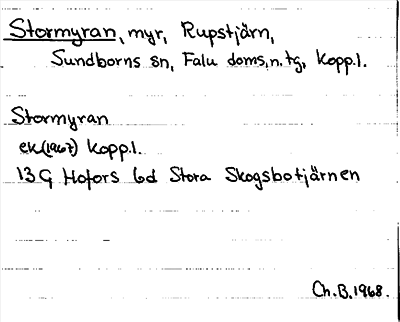 Stormyran, myr, Rupstjärn,
Sundborns sn, Falu doms.n.tg, Kopp.l.
Stormyran
ek(1967) Kopp.l.
13G Hofors 6d Stora Skogsbotjärnen
Ch.B.1968.